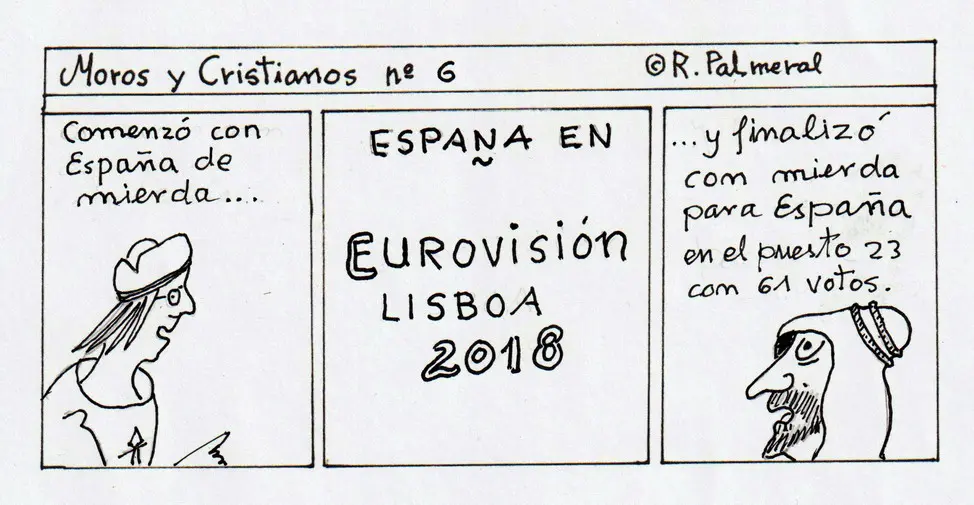 Moros y Cristianos nº 6
© R. Palmeral
Comenzó con
España de
mierda...
ESPAÑA EN
EUROVISIÓN
LISBOA
2018
...y finalizó
con mierda
para España
en el puesto 23
con 61 votos.